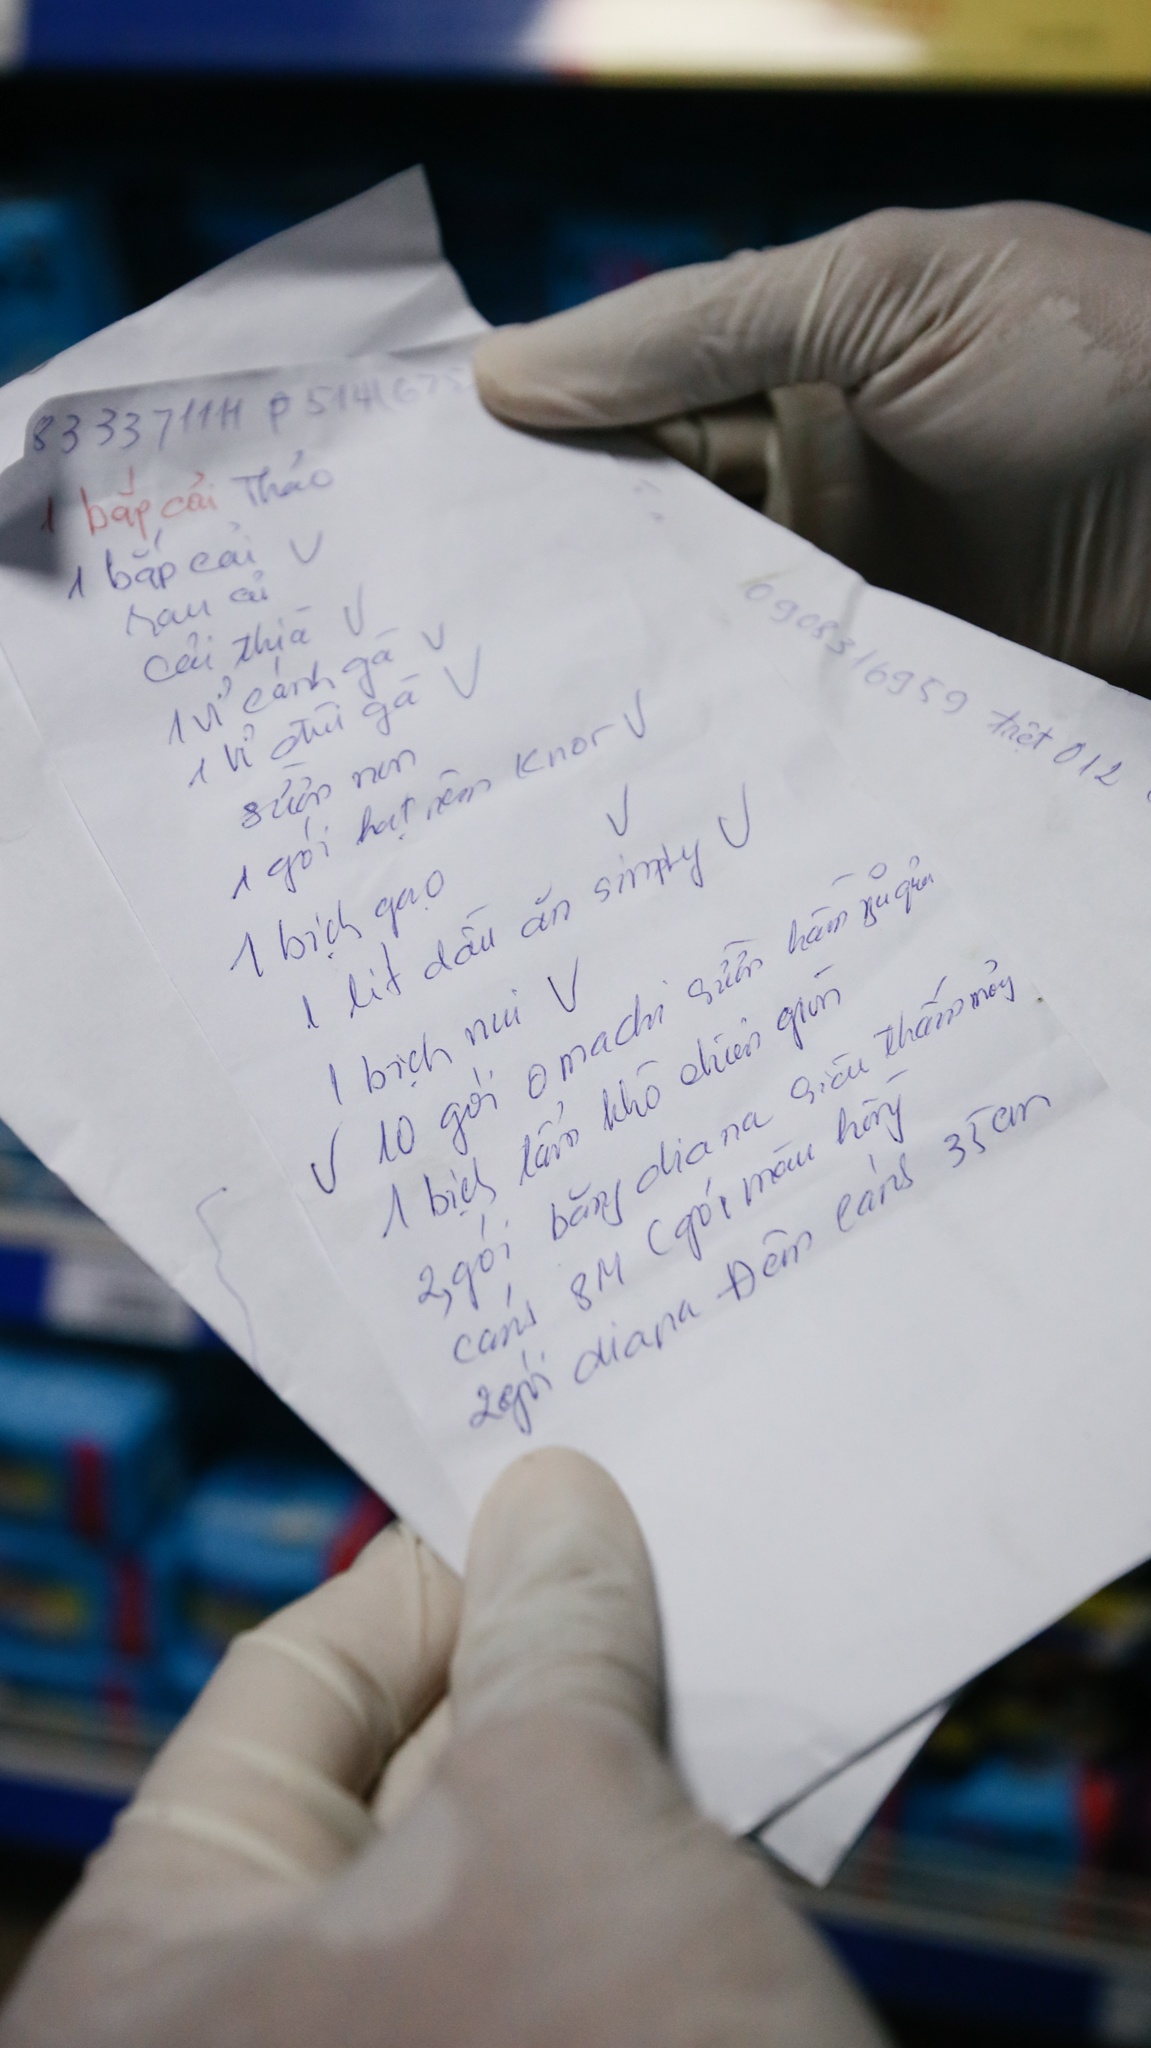 1 bắp cải Thảo
1 bắp cải V
rau cải
cải thìa V
1 vỉ cánh gà V
1 vỉ đùi gà V
sườn non
1 gói hạt nêm Knor V
1 bịch gạo V
1 lit dầu ăn simply V
1 bịch nui V
V 10 gói omachi sườn hầm ngũ quả
1 bịch tăm khô chiên giòn
2 gói băng diana siêu thấm mỏng
cánh 8M (gói màu hồng
2 gói diana Đêm cánh 35cm
0908316959 trệt 012